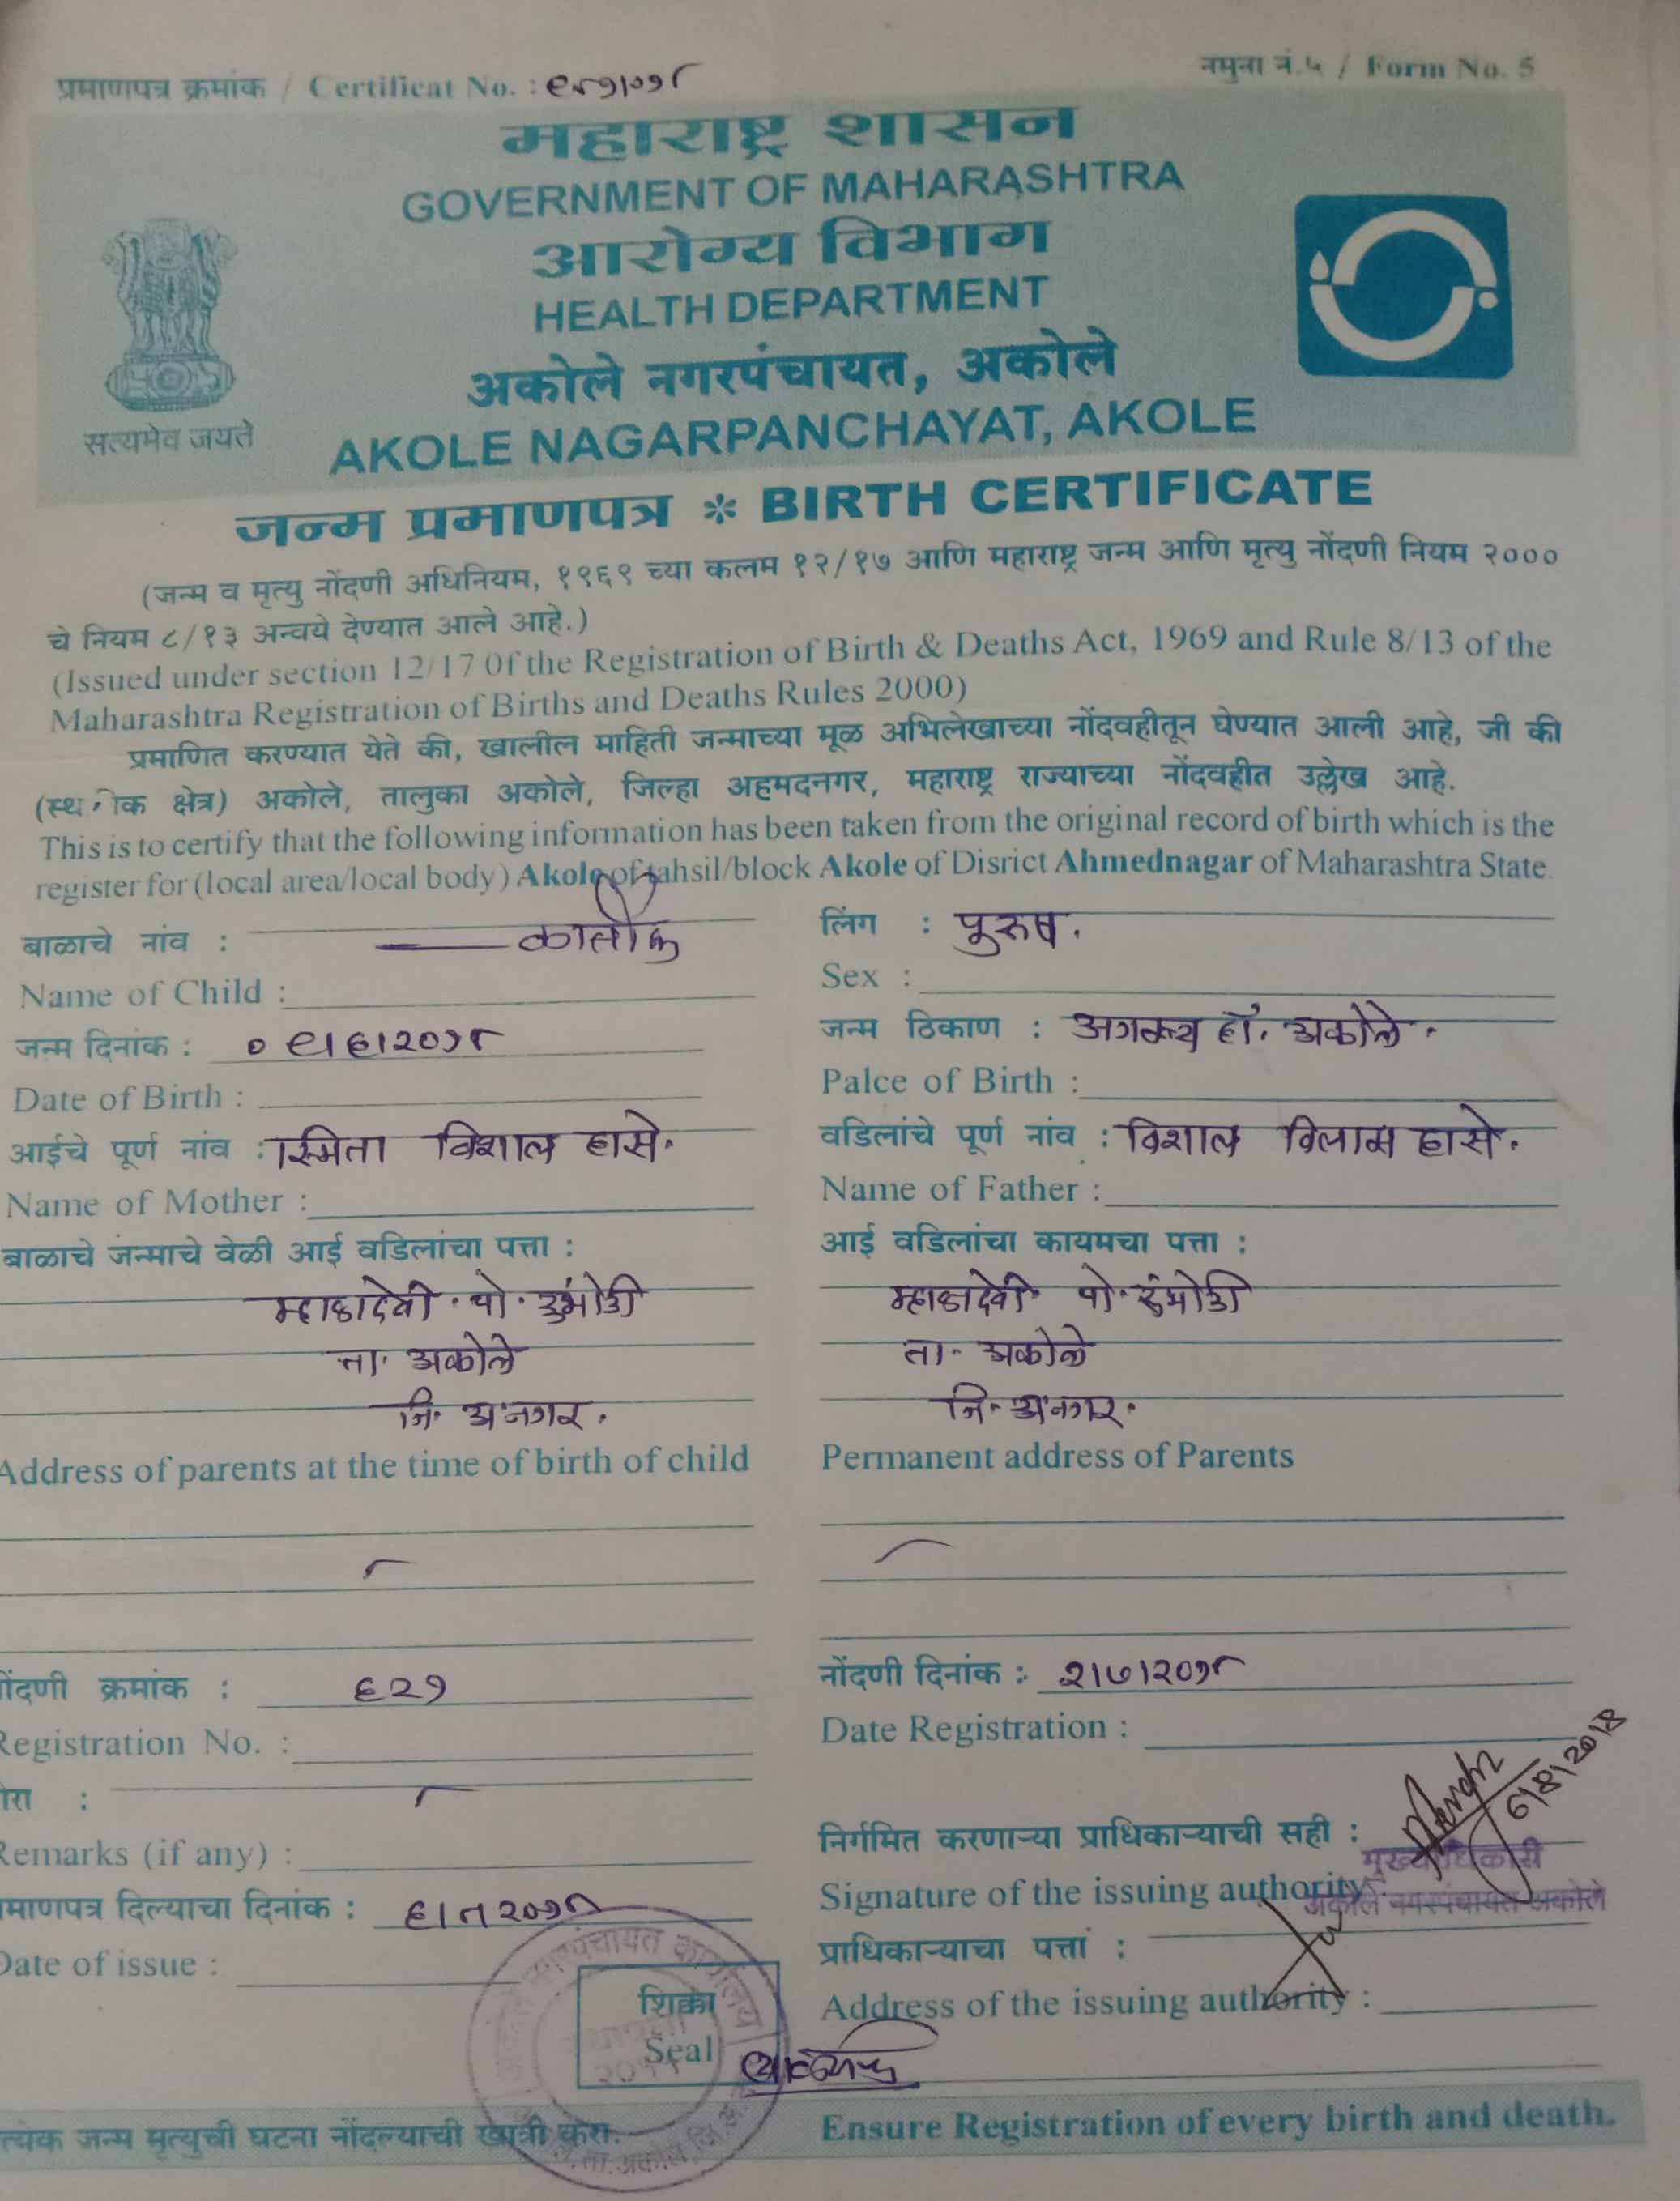 प्रमाणपत्र क्रमांक / Certificat No. :
नमुना नं.५ / Form No. 5
महाराष्ट्र शासन
GOVERNMENT OF MAHARASHTRA
आरोग्य विभाग
HEALTH DEPARTMENT
अकोले नगरपंचायत, अकोले
सत्यमेव जयते
AKOLE NAGARPANCHAYAT, AKOLE
जन्म प्रमाणपत्र * BIRTH CERTIFICATE
(जन्म व मृत्यु नोंदणी अधिनियम, १९६९ च्या कलम १२/१७ आणि महाराष्ट्र जन्म आणि मृत्यु नोंदणी नियम २०००
चे नियम ८/१३ अन्वये देण्यात आले आहे.)
(Issued under section 12/17 0f the Registration of Birth & Deaths Act, 1969 and Rule 8/13 of the
Maharashtra Registration of Births and Deaths Rules 2000)
प्रमाणित करण्यात येते की, खालील माहिती जन्माच्या मूळ अभिलेखाच्या नोंदवहीतून घेण्यात आली आहे, जी की
क्षेत्र) अकोले, तालुका अकोले, जिल्हा अहमदनगर, महाराष्ट्र राज्याच्या नोंदवहीत उल्लेख आहे.
This is to certify that the following information has been taken from the original record of birth which is the
register for (local area/local body) Akole of tahsil/block Akole of Disrict Ahmednagar of Maharashtra State.
बाळाचे नांव :
लिंग : पुरुष.
Name of Child :
Sex :
जन्म दिनांक : ०९/६/२०१८
जन्म ठिकाण : अगस्त्य हॉ. अकोले.
Date of Birth :
Palce of Birth :
आईचे पूर्ण नांव : स्मिता विशाल हासे.
वडिलांचे पूर्ण नांव : विशाल विलास हासे.
Name of Mother :
Name of Father :
बाळाचे जन्माचे वेळी आई वडिलांचा पत्ता :
आई वडिलांचा कायमचा पत्ता :
म्हाळादेवी. पो.
म्हाळादेवी पो.
ता. अकोले
ता. अकोले
जि. अ.नगर.
जि. अ.नगर.
Address of parents at the time of birth of child
Permanent address of Parents
नोंदणी क्रमांक : ६२१
नोंदणी दिनांक : २/७/२०१८
Registration No. :
Date Registration :
Remarks (if any) :
6/8/2018
निर्गमित करणाऱ्या प्राधिकाऱ्याची सही :
मुख्याधिकारी
Signature of the issuing authority :
अकोले नगरपंचायत अकोले
प्रमाणपत्र दिल्याचा दिनांक : ६/८/२०१८
प्राधिकाऱ्याचा पत्ता :
Date of issue :
Address of the issuing authority :
शिक्का
Seal
Ensure Registration of every birth and death.
त्येक जन्म मृत्युची घटना नोंदल्याची खात्री करा.